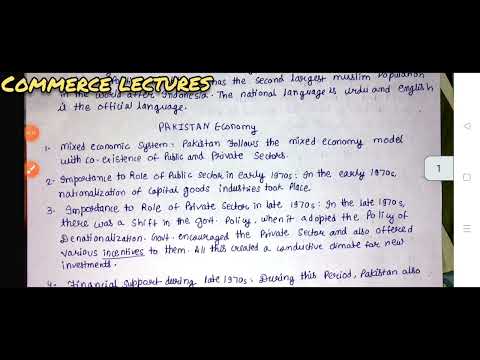 COMMERCE LECTURES
has the second largest muslim Population
in the world after Indonesia. The national language is urdu and english
is the official language.
PAKISTAN Economy
1- Mixed economic System: Pakistan follows the mixed economy model
with co-existence of Public and Private Sectors.
2- Importance to Role of Public sector in early 1970s: In the early 1970s,
nationalization of capital goods industries took Place.
3. Importance to Role of Private Sector in late 1970s: In the late 1970s,
there was a shift in the govt. Policy, when it adopted the Policy of
Denationalization. Govt. encouraged the Private Sector and also offered
various incentives to them. All this created a conductive climate for new
investments.
4- Financial support during late 1970s: During this Period, Pakistan also
1